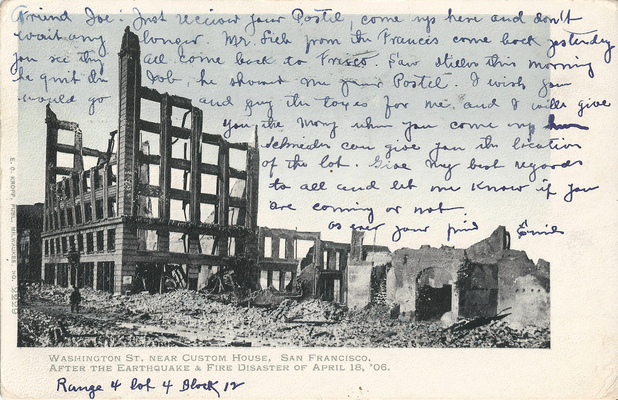 Friend Joe: Just reciev your Postil, come up here and don't
wait any longer Mr. Lieb from the Francis come back yesterday
you see they all come back to Frisco. Saw this morning
he quit the Job, he showed me your Postel. I wish you
would go and pay the taxes for me and I will give
you the mony when you come up
Schneider can give you the location
of the lot. Give my best regards
to all and let me know if you
are coming or not
as ever your frind Emil
E. C. KROPP, PUBL. MILWAUKEE. NO. 2229
WASHINGTON ST. NEAR CUSTOM HOUSE, SAN FRANCISCO.
AFTER THE EARTHQUAKE & FIRE DISASTER OF APRIL 18, '06.
Range 4 lot 4 Block 12